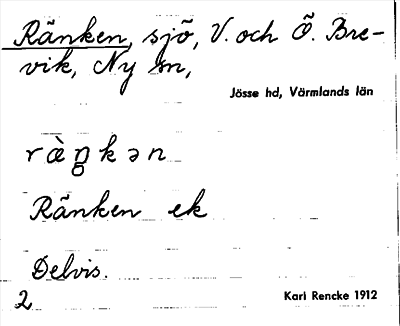 Ränken, sjö, V. och Ö. Bre-
vik, Ny sn,
Jösse hd, Värmlands län
Ränken ek
Delvis.
2
Karl Rencke 1912